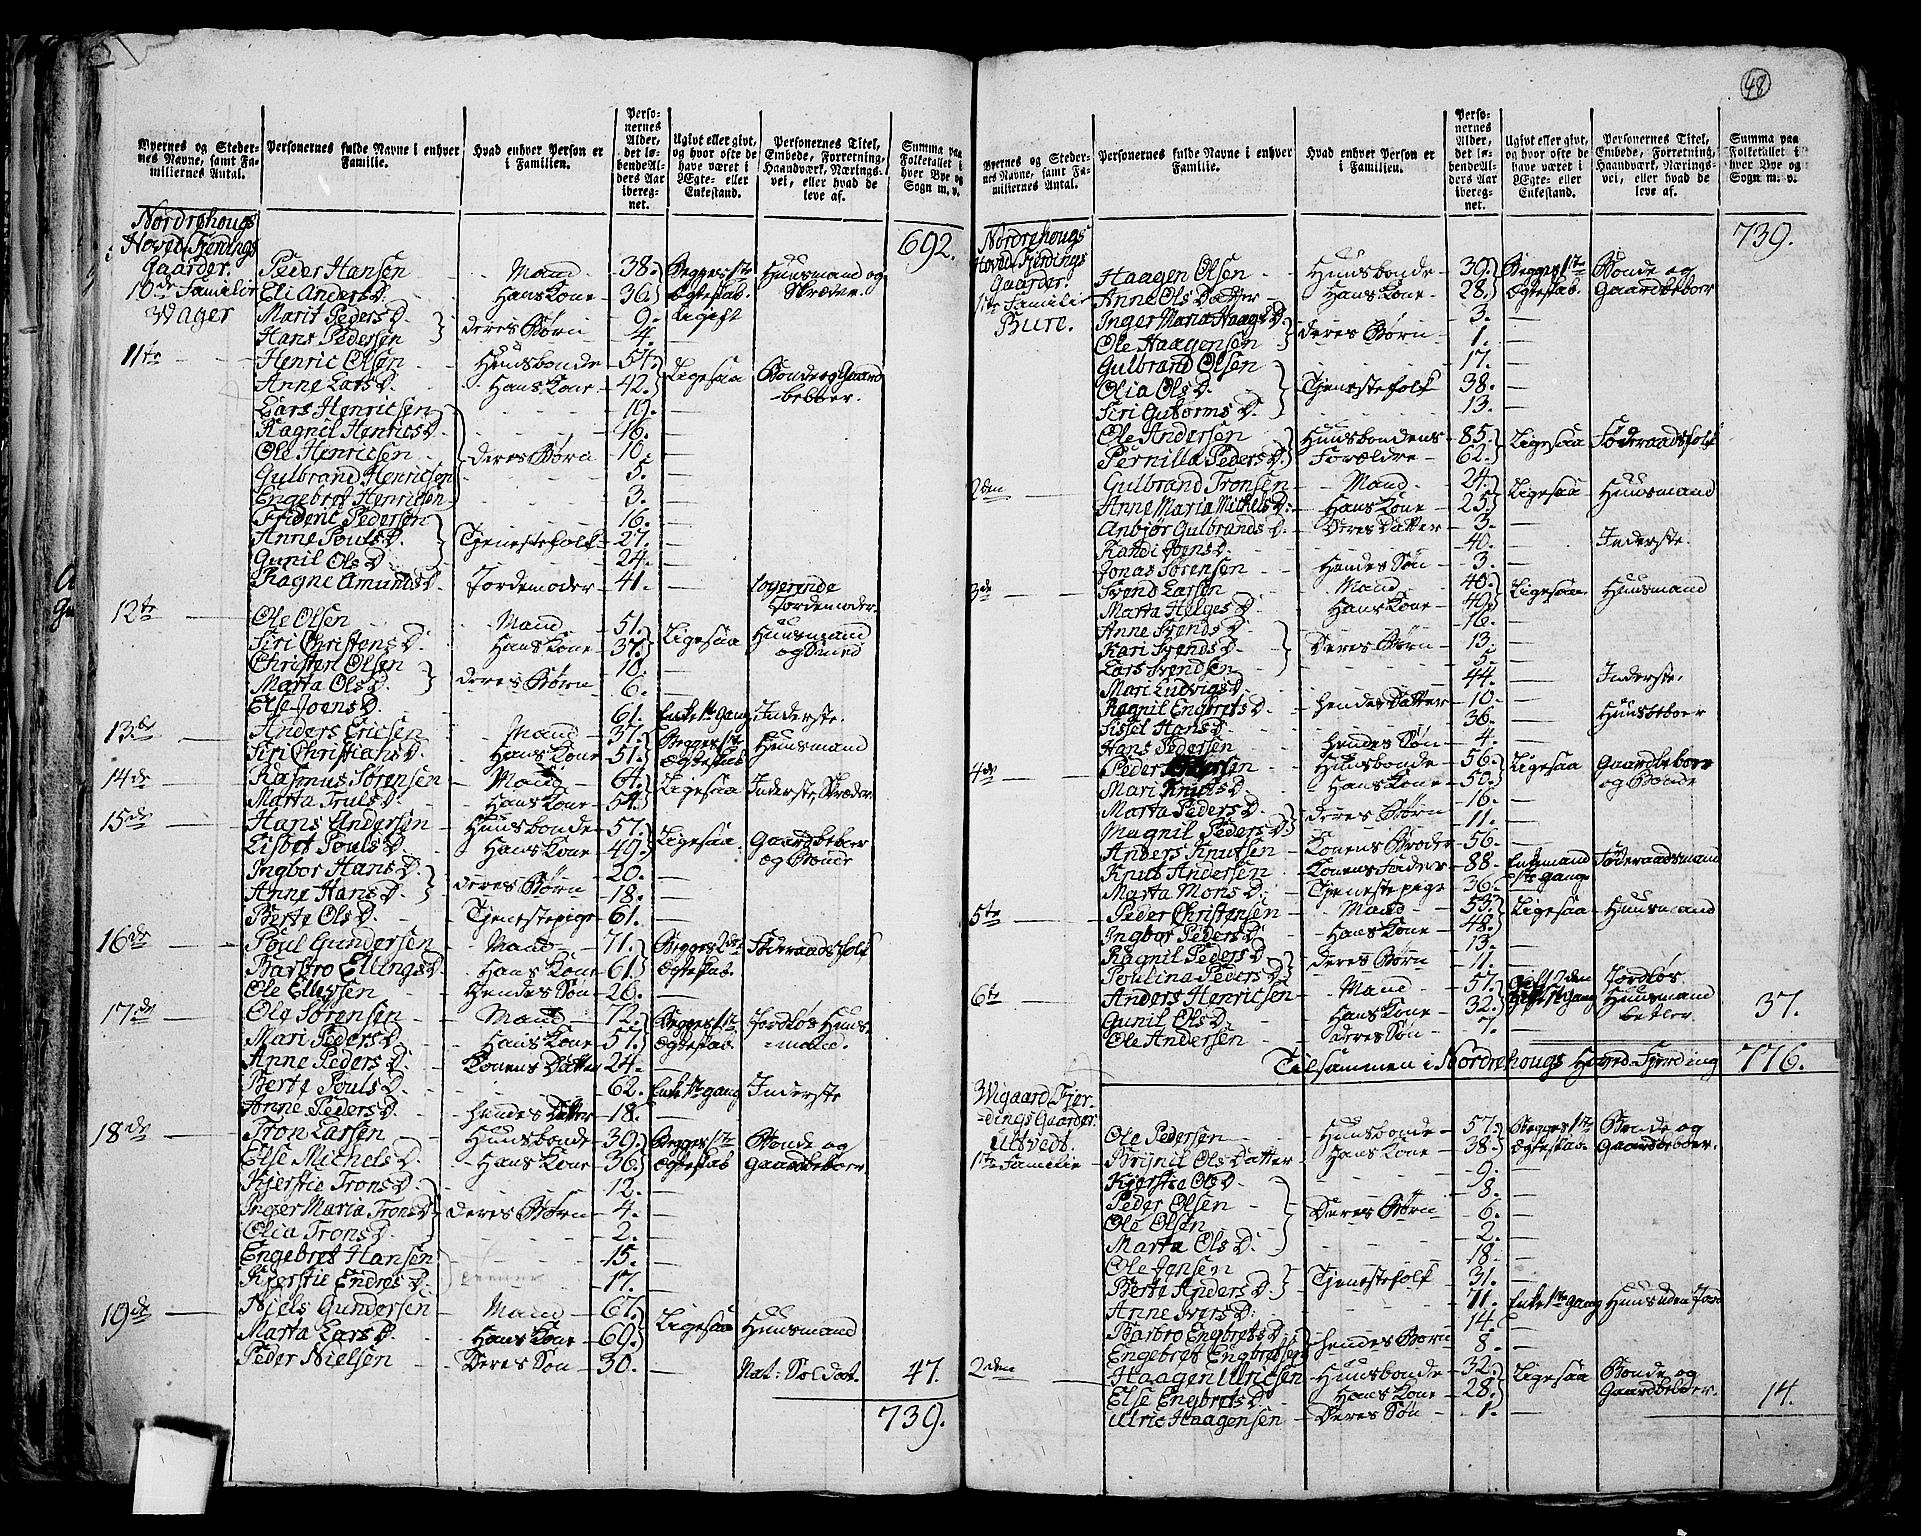 48
Byernes og Stedernes Navne, samt Familiernes Antal.
Personernes fulde Navne i enhver Familie.
Hvad enhver Person er i Familien.
Personernes Alder, det løbende Alders Aar iberegnet.
Ugivt eller givt, og hvor ofte de have været i Ægte- eller Enkestand.
Personernes Titel, Embede, Forretning, Haandværk, Næringsvei, eller hvad de leve af.
Summa paa Folketallet i hver Bye og Sogn m. v.
Nordrehougs 692.
Hoved-Fierdings
Gaarder. Peder Hansen Mand 38. Begges 1te Huusmand og
10de Familie Eli Anders D. Hans Kone 36. Ægteskab. Skræder.
Wager Marit Peders D. deres Børn 9. Ugift
Hans Pedersen 4. —
11te Henric Olsen Huusbonde 57. Ligesaa Bonde og Gaard
Anne Lars D. Hans Kone 42. beboer.
Lars Henricsen 19. —
Ragnil Henrics D. 16. —
Ole Henricsen deres Børn 10. —
Gulbrand Henricsen 5. —
Engebret Henricsen 3. —
Frideric Pedersen 16. —
Anne Pouls D. Tjenestefolk 27. —
Gunil Ols D. 24. —
Ragne Amunds D. Jordemoder 41. — Jordemoder.
12te Ole Olsen Mand 51. Ligesaa Huusmand
Siri Christens D. Hans Kone 37. og Smed
Christen Olsen deres Børn 10. —
Marta Ols D. 6. —
Else Joens D. 61. Enke 1te Gang Inderste.
13de Anders Ericsen Mand 37. Begges 1te Huusmand
Siri Christians D. Hans Kone 51. Ægteskab
14de Rasmus Sørensen Mand 64. Ligesaa Inderste, Skræder.
Marta Truls D. Hans Kone 54.
15de Hans Andersen Huusbonde 57. Ligesaa Gaardbeboer
Lisbet Pouls D. Hans Kone 49. og Bonde
Ingbor Hans D. deres Børn 20. —
Anne Hans D. 18. —
Berte Ols D. Tjenestepige 61. —
16de Poul Gundersen Mand 71. Begges 2det Føderaadsfolk
Barbro Ellings D. Hans Kone 61. Ægteskab.
Ole Ellefsen Hendes Søn 26. —
17de Ole Sørensen Mand 72. Begges 1te Jordløs Huus-
Mari Peders D. Hans Kone 57. Ægteskab. mand.
Anne Peders D. Konens Datter 24. —
Berte Pouls D. 62. Enke 1te gang Inderste
Anne Peders D. hendes Datter 18. —
18de Tron Larsen Huusbonde 39. Begges 1te Bonde og
Else Michels D. Hans Kone 36. Ægteskab Gaardbeboer
Kjerstie Trons D. 12. —
Inger Maria Trons D. deres Børn 4. —
Elia Trons D. 2. —
Engebret Hansen 15. —
Kjerstie Endres D. 17. —
19de Niels Gundersen Mand 67. Ligesaa Huusmand
Marta Lars D. Hans Kone 69.
Peder Nielsen Deres Søn 30. — Nat: Soldat. 47.
739.
Byernes og Stedernes Navne, samt Familiernes Antal.
Personernes fulde Navne i enhver Familie.
Hvad enhver Person er i Familien.
Personernes Alder, det løbende Alders Aar iberegnet.
Ugivt eller givt, og hvor ofte de have været i Ægte- eller Enkestand.
Personernes Titel, Embede, Forretning, Haandværk, Næringsvei, eller hvad de leve af.
Summa paa Folketallet i hver Bye og Sogn m. v.
Nordrehougs 739.
Hoved-Fjerdings
Gaarder. Haagen Olsen Huusbonde 39. Begges 1te Bonde og
1te Familie Anne Ols Datter Hans Kone 28. Ægteskab. Gaardbeboer
Bure. Inger Maria Haags D. deres Børn 3. —
Ole Haagensen 1. —
Gulbrand Olsen 17. —
Olia Ols D. Tjenestefolk 38. —
Siri Gutorms D. 13. —
Ole Andersen Huusbondens 85. Ligesaa Føderaadsfolk
Pernilla Peders D. Forældre 62.
2den Gulbrand Tronsen Mand 24. Ligesaa Huusmand
Anne Maria Michels D. Hans Kone 25.
Anbjør Gulbrands D. Deres Datter 3. —
Randi Joens D. 40. — Inderste.
Jonas Sørensen Hendes Søn 3. —
3de Svend Larsen Mand 40. Ligesaa Huusmand
Marta Helges D. Hans Kone 49.
Anne Svends D. 16. —
Kari Svends D. Deres Børn 13. —
Lars Svendsen 5. —
Mari Ludvigs D. 44. — Inderste.
Ragnil Engbrets D. hendes Datter 10. —
Sissel Hans D. 36. — Huusbeboer
Hans Pedersen hendes Søn 4. —
4de Peder Huusbonde 56. Ligesaa Gaardbeboer
Mari Knuts D. Hans Kone 50. og Bonde
Marta Peders D. deres Børn 16. —
Magnil Peders D. 11. —
Anders Knutsen Konens Broder 56. —
Knut Andersen Konens Fader 88. Enkemand Føderaadsmand
Marta Mons D. Tjenestepige 36. — 1ste Gang
5te Peder Christensen Mand 53. Ligesaa Huusmand
Ingbor Peders D. Hans Kone 48.
Ragnil Peders D. deres Børn 13. —
Poulina Peders D. 11. —
6te Anders Henricsen Mand 57. Jordløs
Gunil Ols D. Hans Kone 32. Huusmand 37.
Ole Andersen deres Søn 7. — betler.
Tilsammen i Nordrehougs Hoved-Fjerding 776.
Wigaard Fjer-
dings Gaarder.
Ultvedt. Ole Pedersen Huusbonde 57. Begges 1te Bonde og
1te Familie Brynil Ols Datter Hans Kone 38. Ægteskab. Gaardbeboer.
Kjerstie Ols D. 9. —
Peder Olsen 8. —
Ole Olsen Deres Børn 6. —
Marta Ols D. 2. —
Ole Jonsen 18. —
Berte Anders D. Tjenestefolk 31. —
Anne Ivers D. 71. Enke 1te Gang Huus uden Jord
Barbro Engbrets D. 14. —
Engebret Engbretsen hendes Børn 8. —
2den Haagen Ulricsen Huusbonde 32. Ligesaa Bonde og
Else Engbrets D. Hans Kone 28. Gaardbeboer. 14.
Ulric Haagensen Deres Søn 1. —